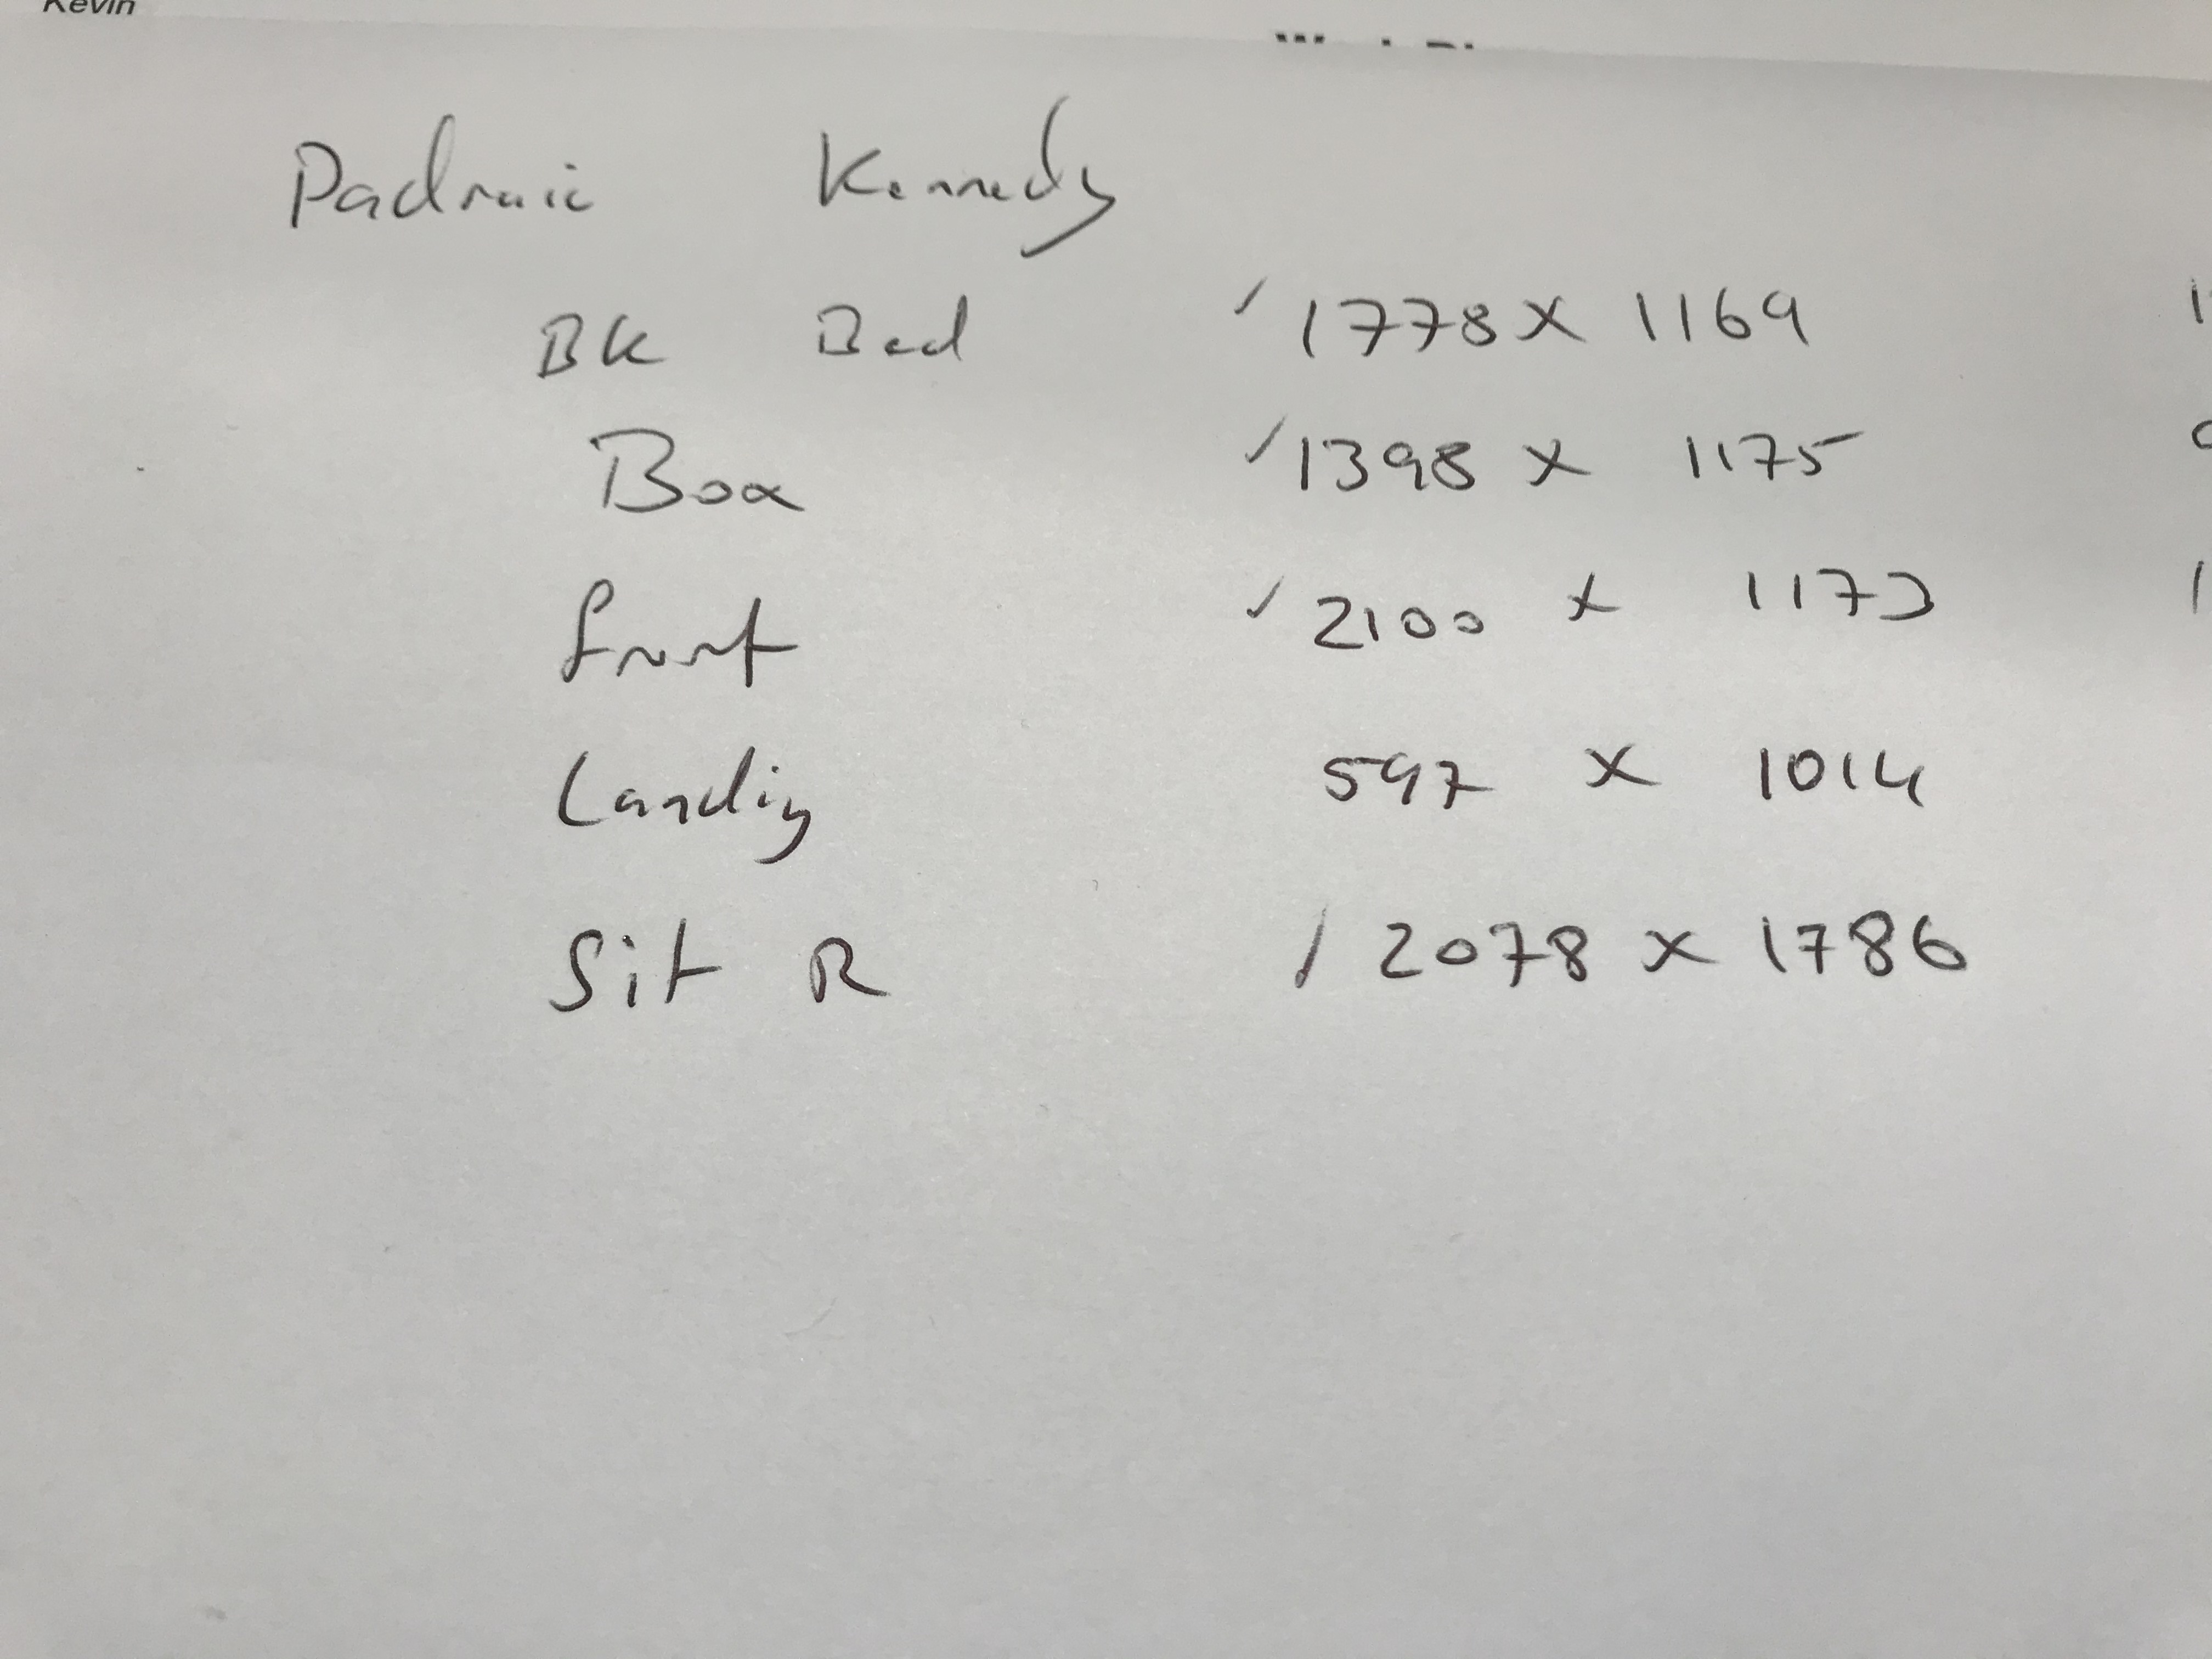 Kevin
Padraic Kennedy
BK Bed ✓ 1778 x 1169
Box ✓ 1398 x 1175
Front ✓ 2100 x 1173
Landing 597 x 1014
Sit R / 2078 x 1786